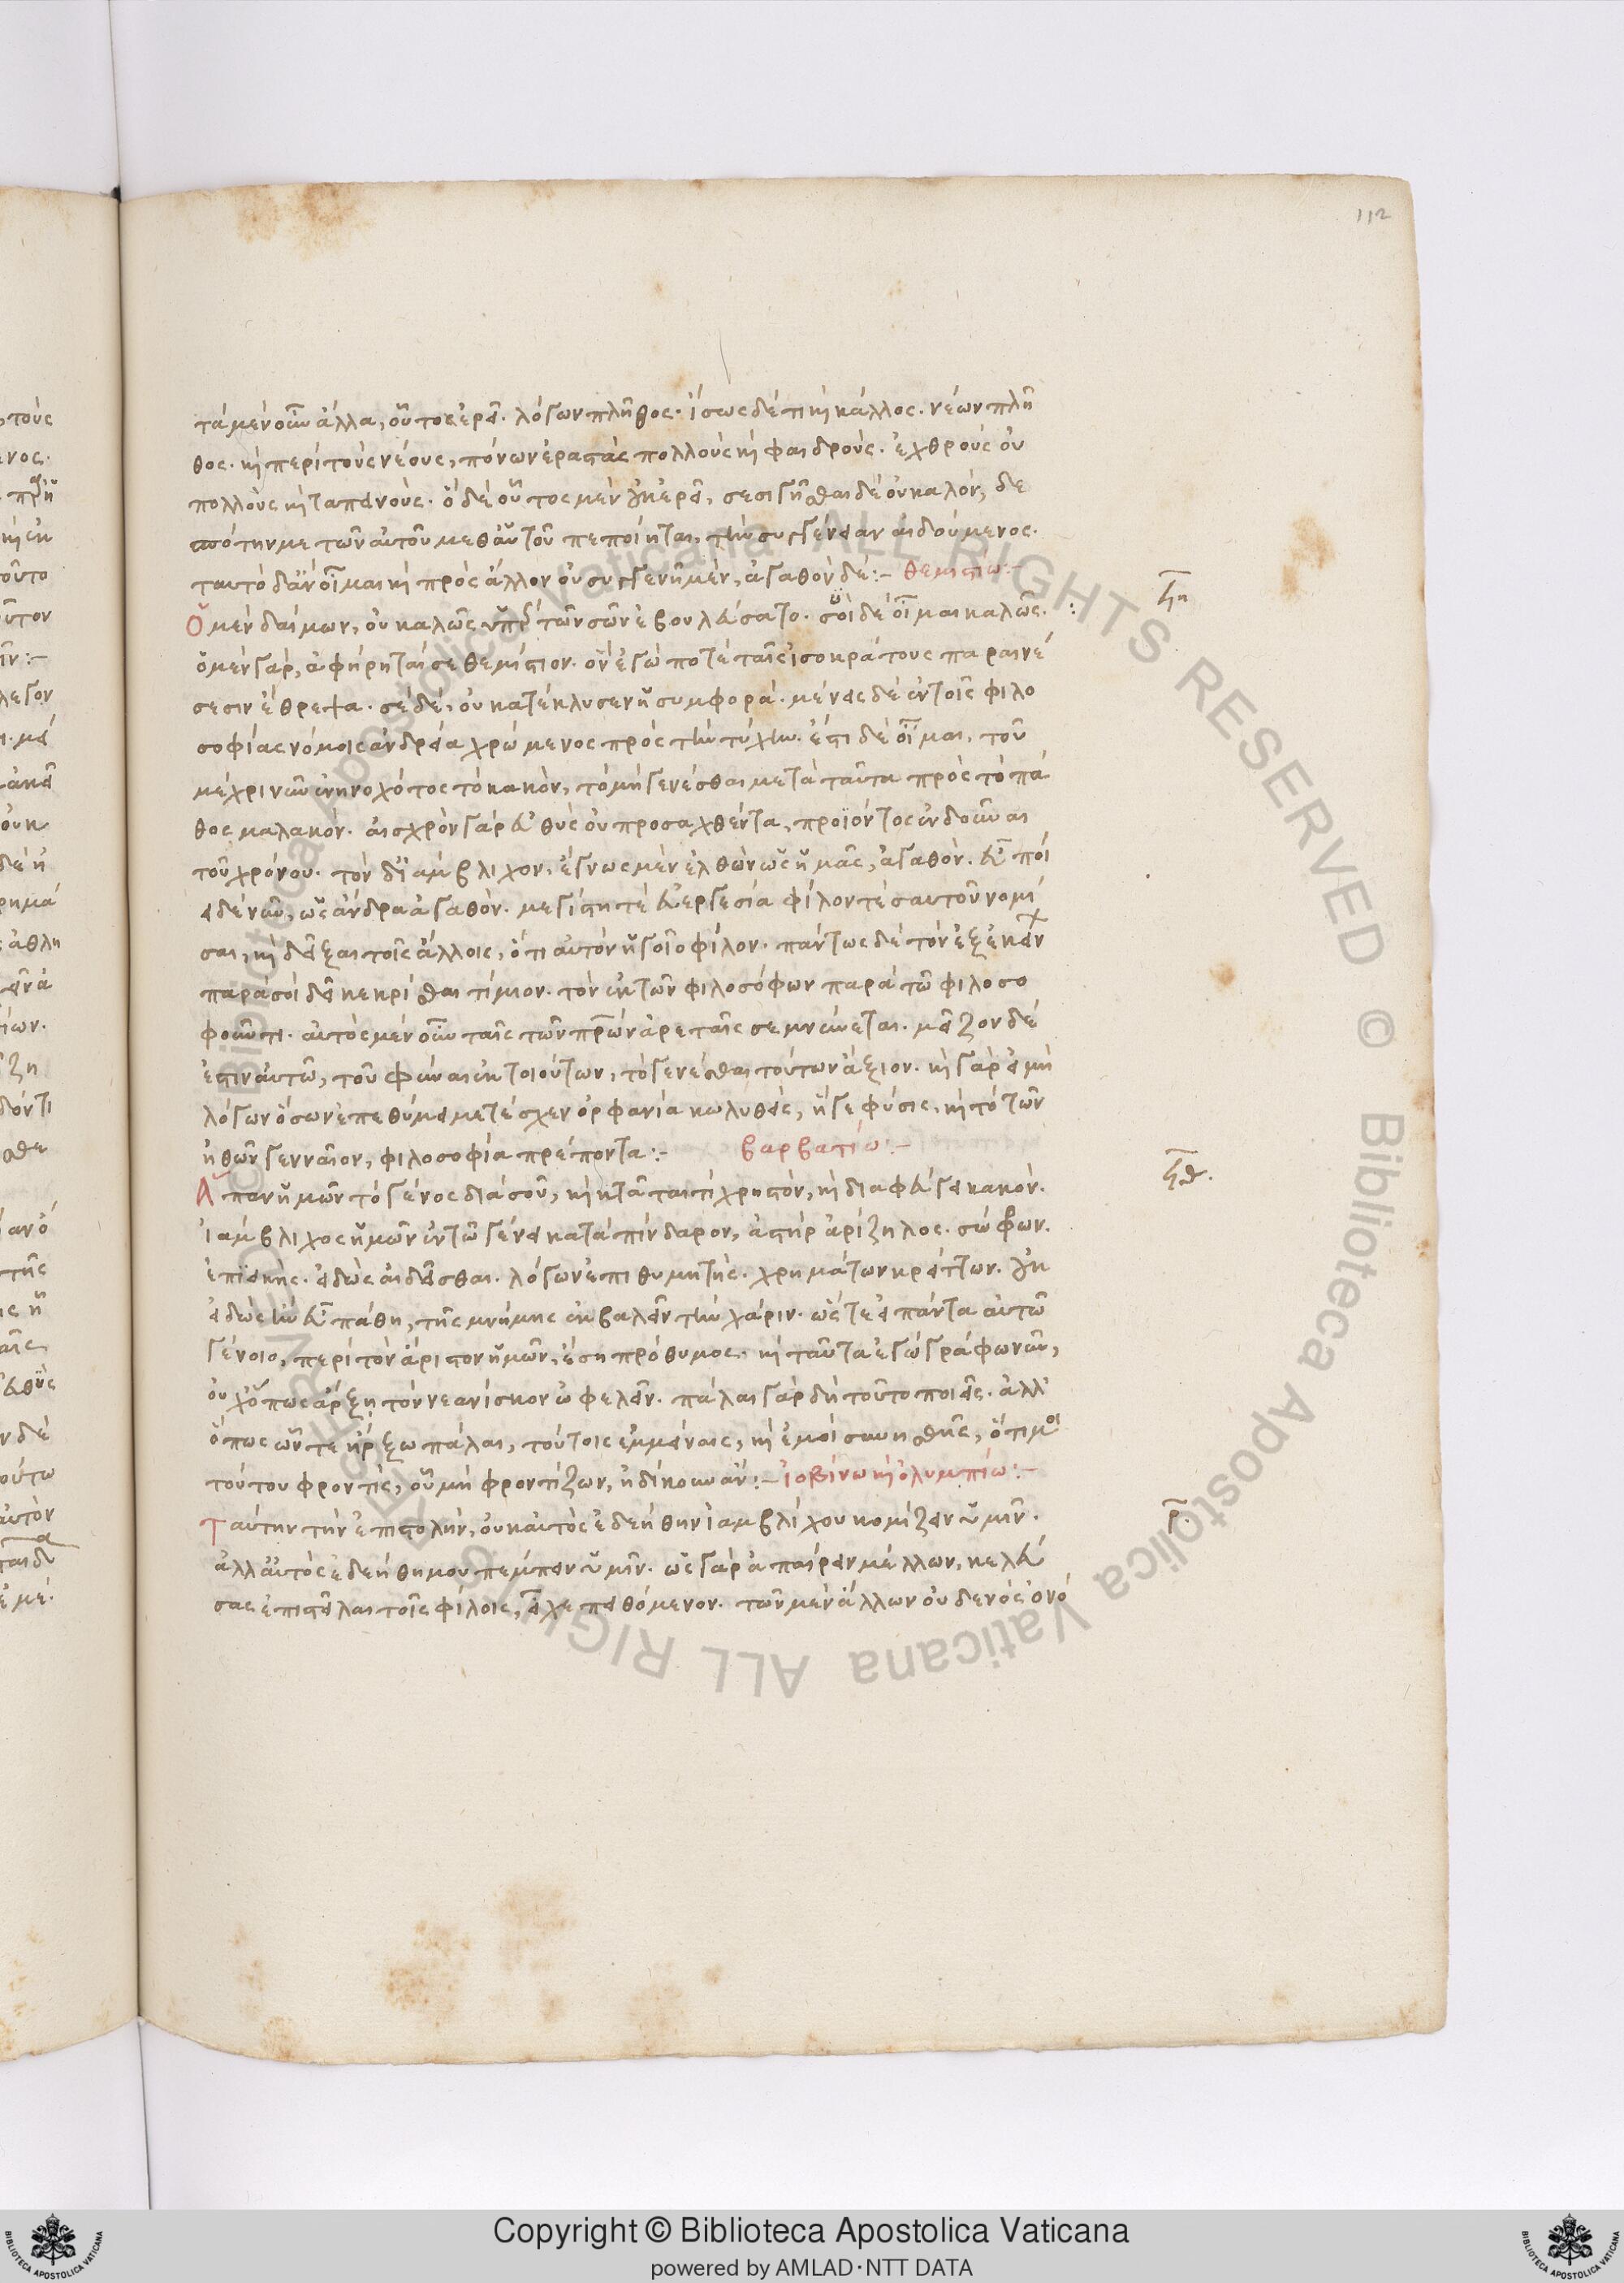 112
τὰ μὲν οὖν ἄλλα, οὗτος ἐρεῖ. λόγων πλῆθος. ἴσως δέ τι καὶ κάλλος. νέων πλῆ
θος. καὶ περὶ τοὺς νέους, πόνων ἐραστὰς πολλοὺς καὶ φαιδρούς. ἐχθροὺς οὐ
πολλοὺς καὶ ταπεινούς. ὃ δὲ οὗτος μὲν οὐκ ἐρεῖ, σεσιγῆσθαι δὲ οὐ καλόν, δε
σπότην με τῶν αὐτοῦ μεθ' αὑτοῦ πεποίηται, τὴν συγγένειαν αἰδούμενος.
ταυτὸ δ' ἂν οἶμαι καὶ πρὸς ἄλλον οὐ συγγενῆ μὲν, ἀγαθὸν δέ:- θεμιστίω:-
Ὁ μὲν δαίμων, οὐ καλῶς ὑπὲρ τῶν σῶν ἐβουλεύσατο. σοὶ δὲ οἶμαι καλῶς.
ὁ μὲν γὰρ, ἀφήρηταί σε θεμίστιον. ὃν ἐγώ ποτε ταῖς ἰσοκράτους παραινέ
σεσιν ἔθρεψα. σὲ δὲ, οὐ κατέκλυσεν ἡ συμφορά. μένεις δὲ ἐν τοῖς φιλο
σοφίας νόμοις ἀνδρεία χρώμενος πρὸς τὴν τύχην. ἔστι δὲ οἶμαι, τοῦ
μέχρι νῦν ἐνηνοχότος τὸ κακὸν, τὸ μὴ γενέσθαι μετὰ ταῦτα πρὸς τὸ πά
θος μαλακόν. αἰσχρὸν γὰρ εὐθὺς οὐ προσαχθέντα, προϊόντος ἐνδοῦναι
τοῦ χρόνου. τὸν δ' ἰάμβλιχον, ἔγνως μὲν ἐλθὼν ὡς ἡμᾶς, ἀγαθόν. εὖ ποί
ει δὲ νῦν, ὡς ἄνδρα ἀγαθόν. μεγίστη τε εὐεργεσία φίλον τε σαυτοῦ νομί
σαι, καὶ δεῖξαι τοῖς ἄλλοις, ὅτι αὐτὸν ἡγοῖο φίλον. πάντως δὲ τὸν ἐξ ἐκείν
παρὰ σοὶ δεῖ κεκρίσθαι τίμιον. τὸν ἐκ τῶν φιλοσόφων παρὰ τῶ φιλοσο
φοῦντι. αὐτὸς μὲν οὖν ταῖς τῶν πρων ἀρεταῖς σεμνύνεται. μεῖζον δέ
ἐστιν αὐτῶ, τοῦ φῦναι ἐκ τοιούτων, τὸ γενέσθαι τούτων ἄξιον. καὶ γὰρ εἰ μὴ
λόγων ὅσων ἐπεθύμει μετέσχεν ὀρφανία κωλυθεὶς, ἥ γε φύσις, καὶ τὸ τῶν
ἠθῶν γενναῖον, φιλοσοφία πρέποντα:- βαρβατίω:-
Ἅπαν ἡμῶν τὸ γένος διὰ σοῦ, καὶ κτᾶταί τι χρηστὸν, καὶ διαφεύγει κακόν.
ἰάμβλιχος ἡμῶν ἐν τῶ γένει κατὰ πίνδαρον, ἀστὴρ ἀρίζηλος. σώφρων.
ἐπιεικής. εἰδὼς αἰδεῖσθαι. λόγων ἐπιθυμητής. χρημάτων κρείττων. οὐκ
εἰδὼς ἢν εὖ πάθη, τῆς μνήμης ἐκβαλεῖν τὴν χάριν. ὥστ' εἰ πάντα αὐτῶ
γένοιο, περὶ τὸν ἄριστον ἡμῶν, ἔση πρόθυμος. καὶ ταῦτα ἐγὼ γράφω νῦν,
οὐχ ὅπως ἄρξη τὸν νεανίσκον ὠφελεῖν. πάλαι γὰρ δὴ τοῦτο ποιεῖς. ἀλλ'
ὅπως ὧν τε ἤρξω πάλαι, τούτοις ἐμμείναις, καὶ ἐμοὶ συνησθῆς, ὅτι μοι
τούτου φροντὶς, οὗ μὴ φροντίζων, ἠδίκουν ἄν:- ἰοβίνω καὶ ὀλυμπίω:-
Ταύτην τὴν ἐπιστολὴν, οὐκ αὐτὸς ἐδεήθην ἰαμβλίχου κομίζειν ὑμῖν.
ἀλλ' αὐτὸς ἐδεήθη μου πέμπειν ὑμῖν. ὡς γὰρ ἀπαίρειν μέλλων, κελεύ
σας ἐπιστεῖλαι τοῖς φίλοις, εἶχε πειθόμενον. τῶν μὲν ἄλλων οὐδενὸς ὀνό
ϟη
ϟθ.
ρ.
Copyright © Biblioteca Apostolica Vaticana
powered by AMLAD・NTT DATA
© Biblioteca Apostolica Vaticana ALL RIGHTS RESERVED © Biblioteca Apostolica Vaticana ALL RIGHTS RESERVED
BIBLIOTECA APOSTOLICA VATICANA
BIBLIOTECA APOSTOLICA VATICANA